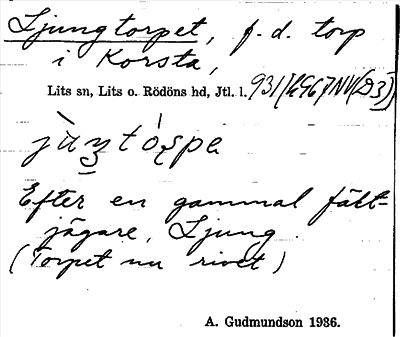 Ljungtorpet, f. d. torp
i Korsta,
Lits sn, Lits o. Rödöns hd, Jtl. l.
Efter en gammal fält-
jägare, Ljung.
(Torpet nu rivet)
A. Gudmundson 1936.